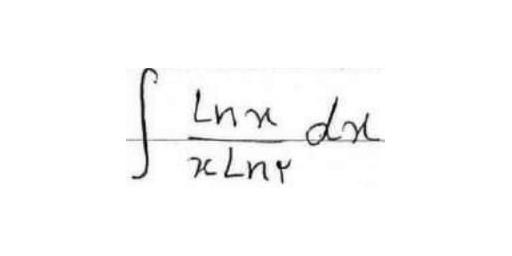 ∫ Lnx / xLn۲ dx